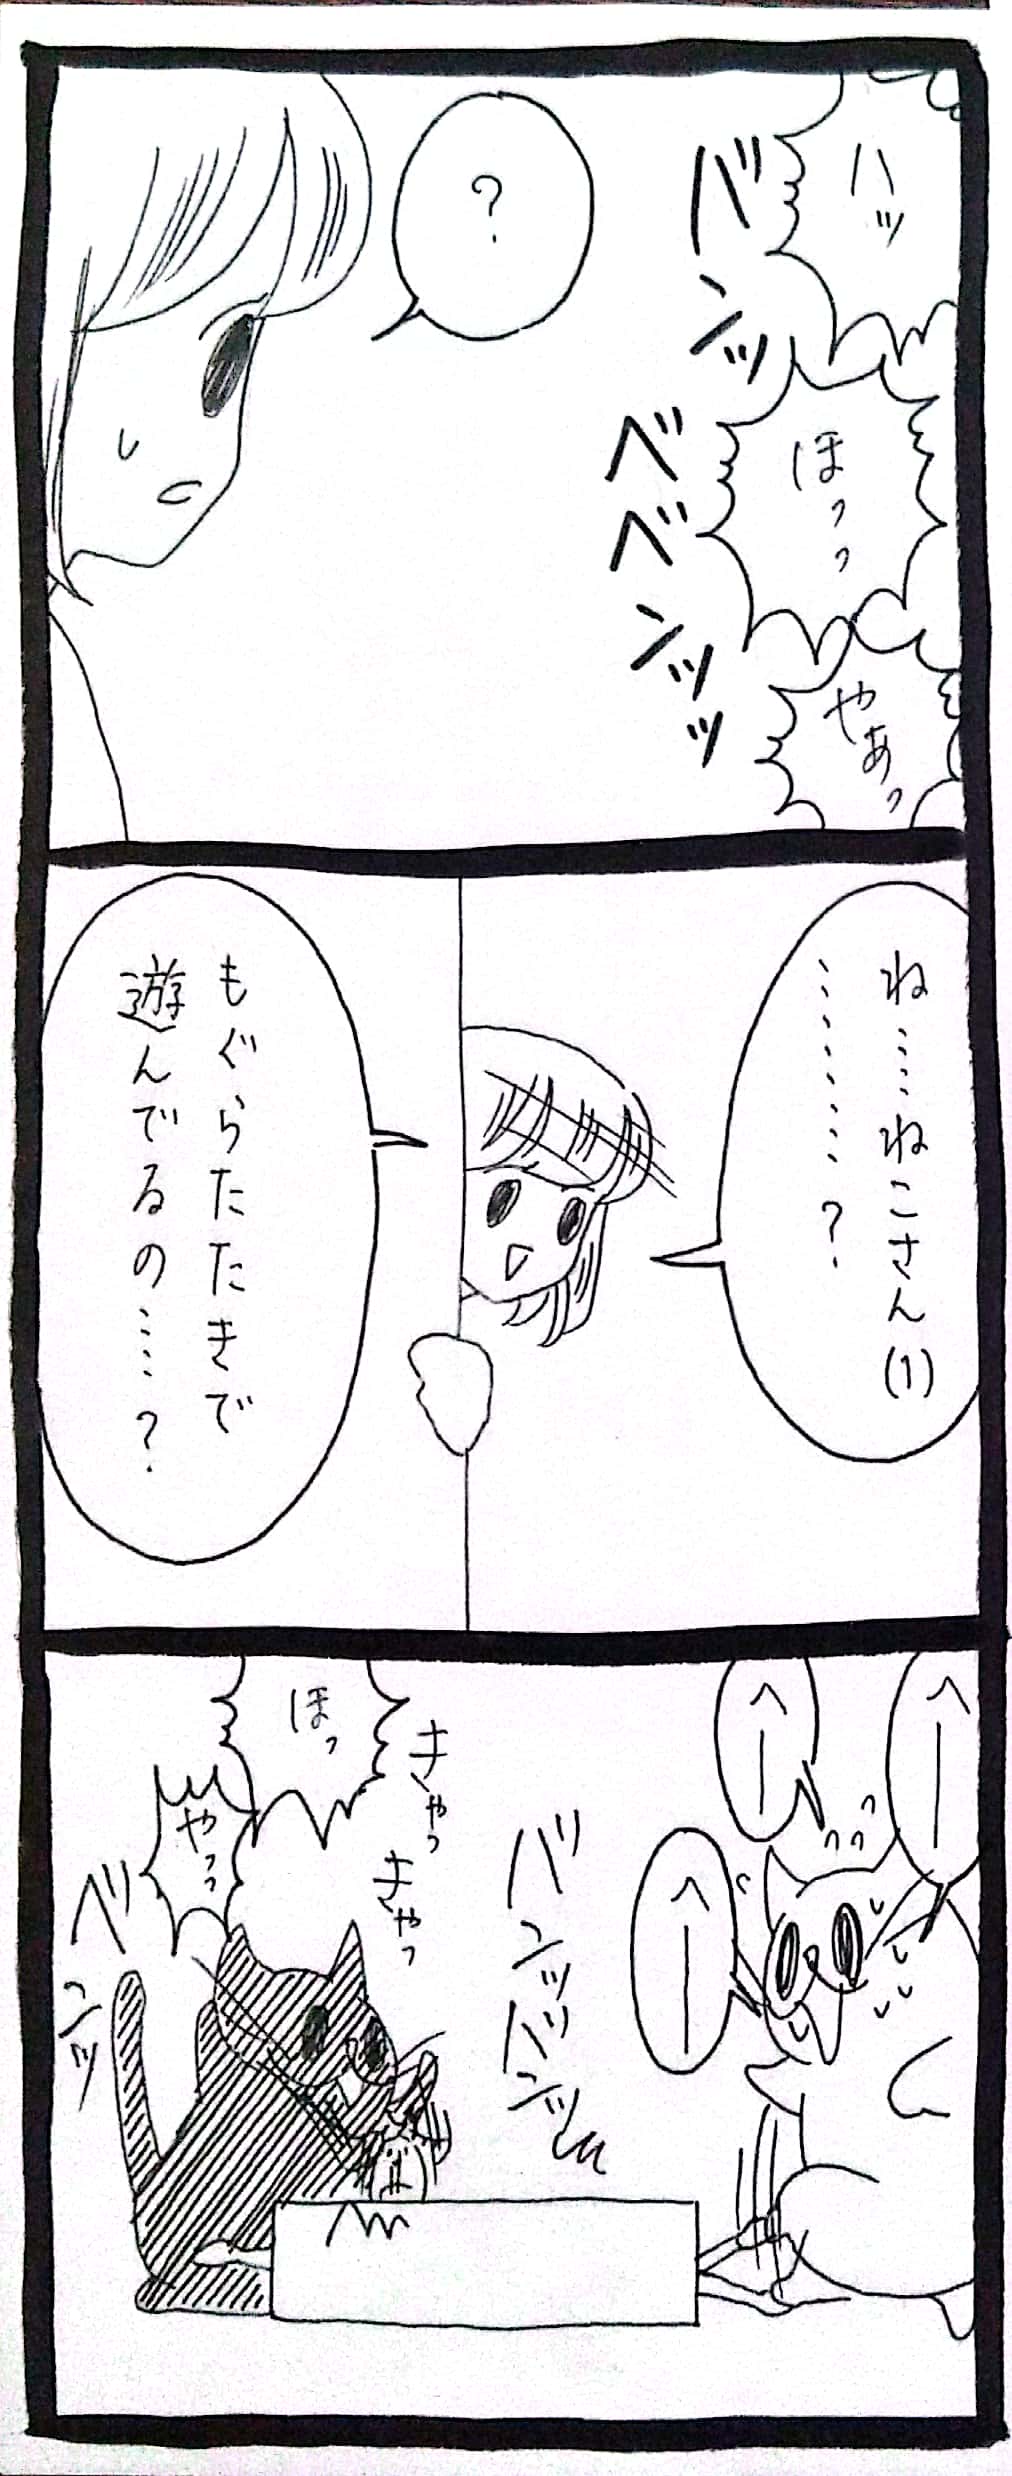 ハッ
バンッ
ほっっ
ベベンッッ
やあっ
?
ね……ねこさん(1)
…………?
もぐらたたきで
遊んでるの……?
へー
へー
へー
バンッバンッ
きゃっ
きゃっ
ほっ
やっっ
バンッ